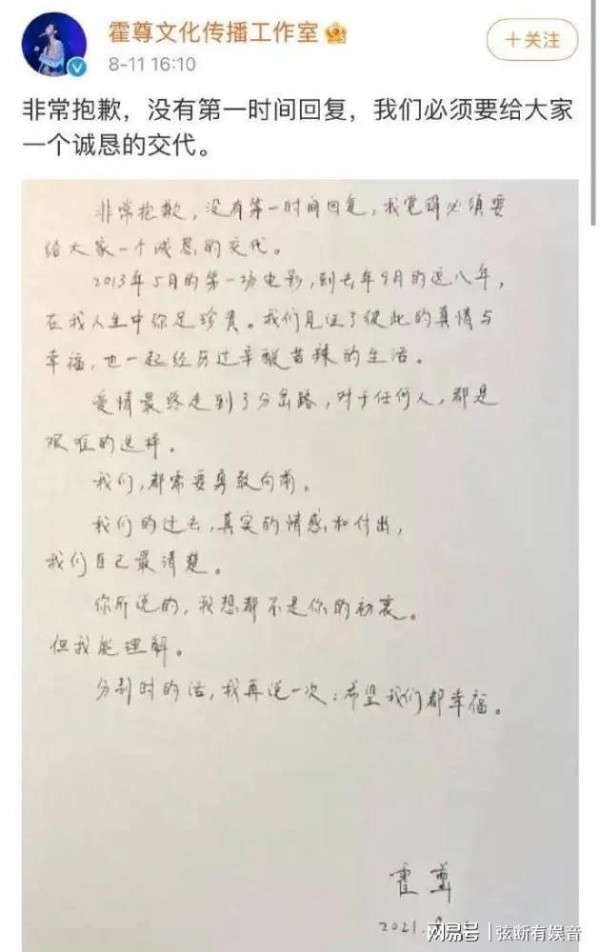 霍尊文化传播工作室
8-11 16:10
+关注
非常抱歉，没有第一时间回复，我们必须要给大家
一个诚恳的交代。
非常抱歉，没有第一时间回复，我觉得必须要
给大家一个诚恳的交代。
2013年5月的第一场电影，到去年9月的这八年，
在我人生中你足珍贵。我们见证了彼此的真情与
幸福，也一起经历过辛酸苦辣的生活。
爱情最终走到了分岔路，对于任何人，都是
艰难的选择。
我们，都需要勇敢向前。
我们的过去，真实的情感和付出，
我们自己最清楚。
你所说的，我想都不是你的初衷。
但我能理解。
分别时的话，我再说一次：希望我们都幸福。
霍尊
2021.
网易号 | 弦断有娱音